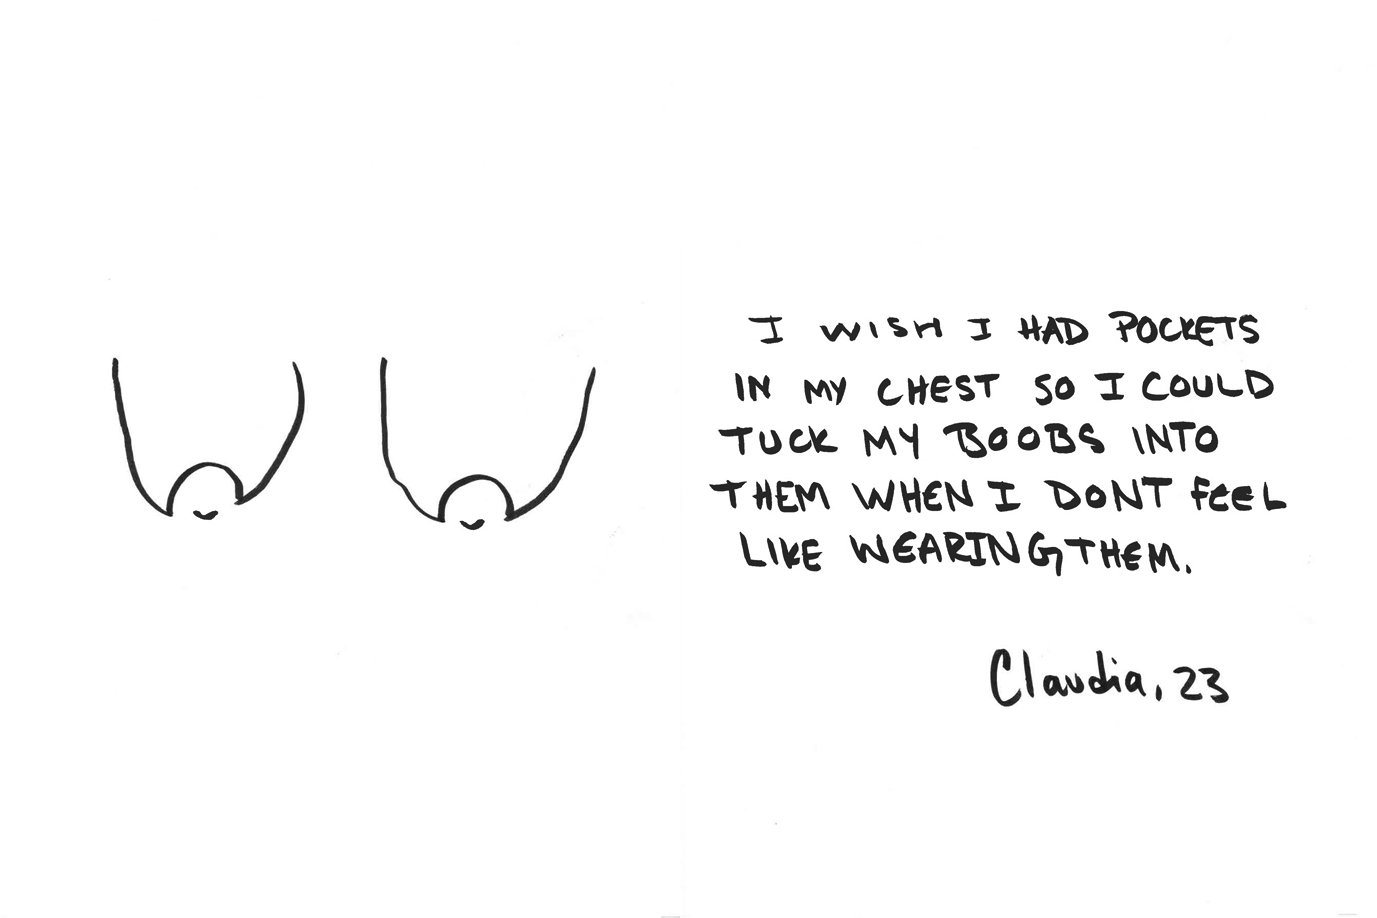 I WISH I HAD POCKETS
IN MY CHEST SO I COULD
TUCK MY BOOBS INTO
THEM WHEN I DONT FEEL
LIKE WEARING THEM.
Claudia, 23